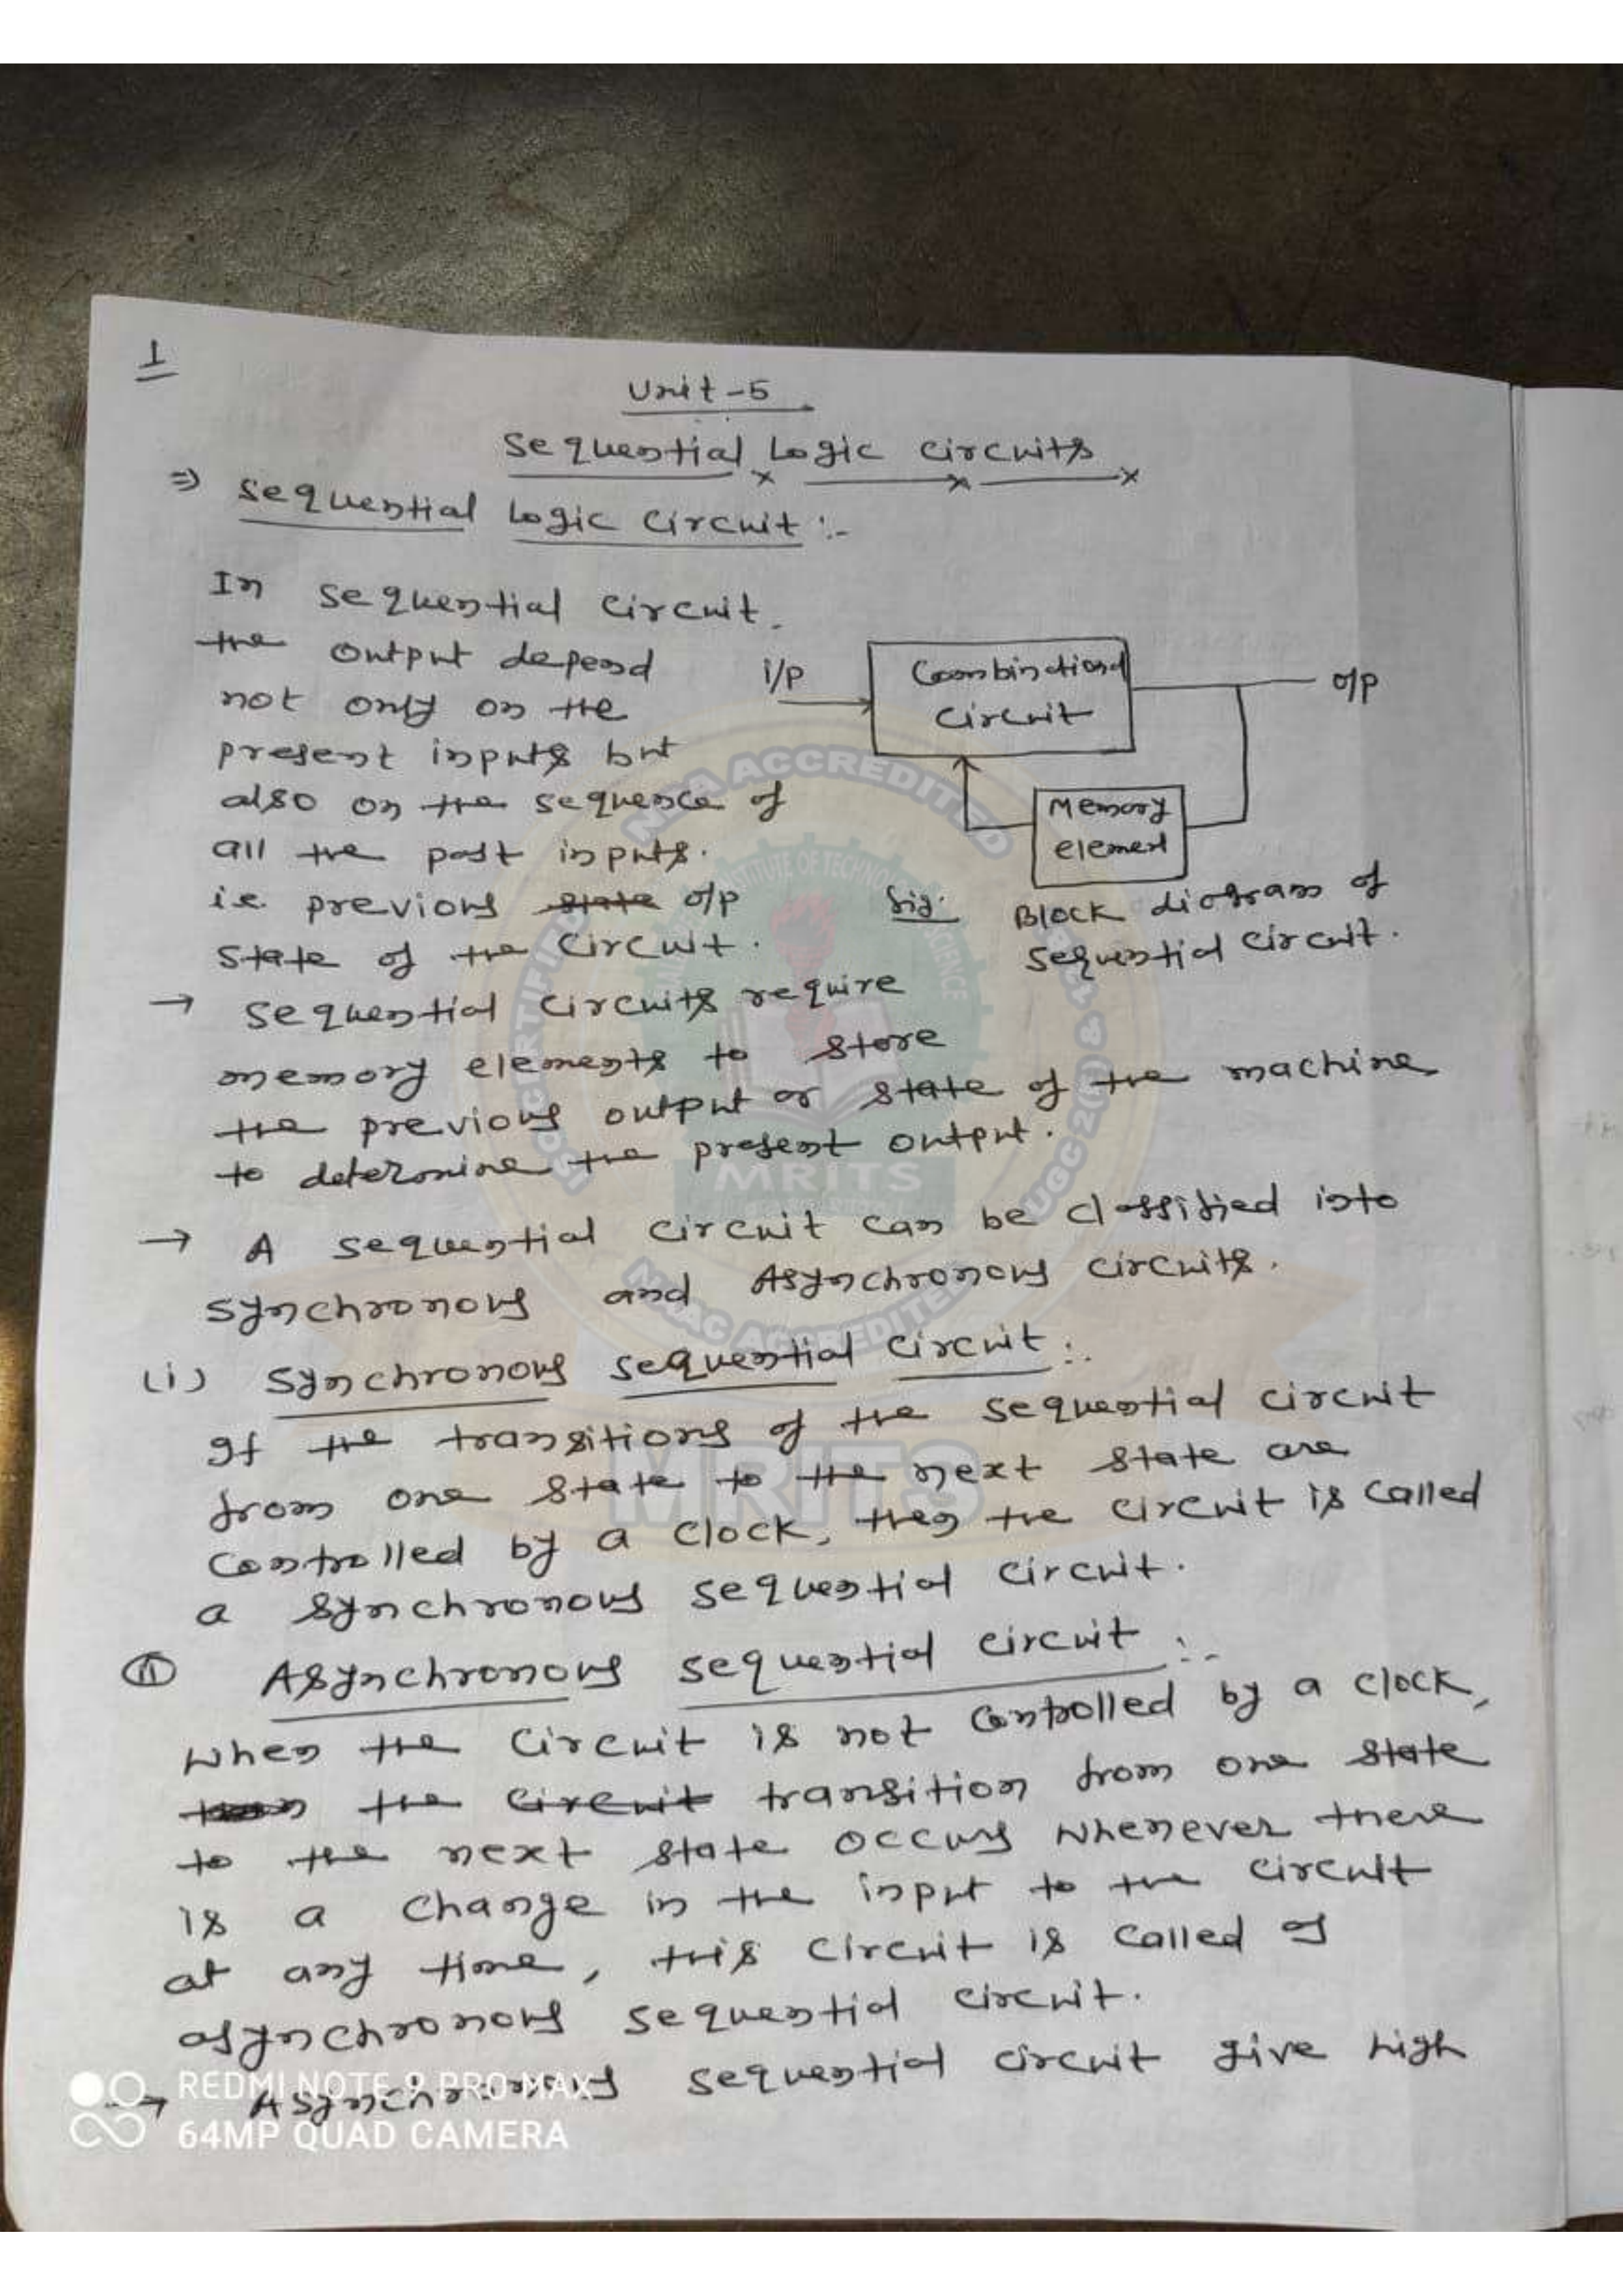 1
Unit-5
Sequential Logic Circuits
⇒ Sequential Logic Circuit :-
In sequential circuit.
the output depend
not only on the
present inputs but
also on the sequence of
all the past inputs.
i.e. previous state o/p
state of the circuit.
i/p
Combinational
circuit
o/p
Memory
element
fig: Block diagram of
sequential circuit.
→ Sequential circuits require
memory elements to store
the previous output or state of the machine
to determine the present output.
→ A sequential circuit can be classified into
synchronous and Asynchronous circuits.
(i) Synchronous sequential circuit :-
If the transitions of the sequential circuit
from one state to the next state are
controlled by a clock, then the circuit is called
a synchronous sequential circuit.
(ii) Asynchronous sequential circuit :-
when the circuit is not controlled by a clock,
the circuit transition from one state
to the next state occurs whenever there
is a change in the input to the circuit
at any time, this circuit is called as
asynchronous sequential circuit.
→ Asynchronous sequential circuit give high
REDMI NOTE 9 PRO MAX
64MP QUAD CAMERA
NBA ACCREDITED
INSTITUTE OF TECHNOLOGY
SCIENCE
MRITS
UGC 2(f) &
NAAC ACCREDITED
MRITS